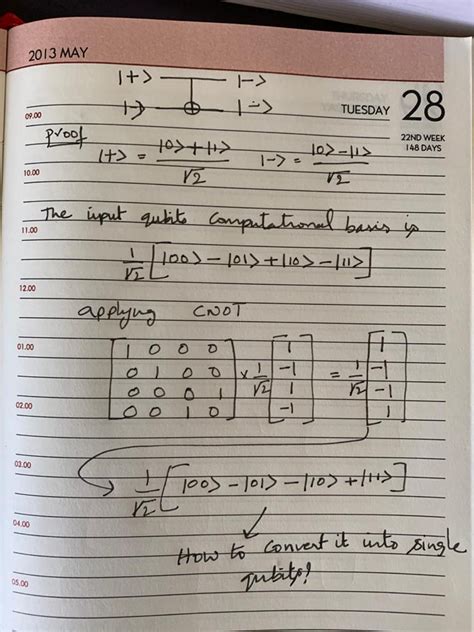 2013 MAY
TUESDAY 28
22ND WEEK
148 DAYS
|+> |->
|-> |->
09.00
proof
|+> = |0>+|1> / √2 |-> = |0>-|1> / √2
10.00
The input qubits Computational basis is
11.00
1/√2 [|00> - |01> + |10> - |11>]
12.00
applying CNOT
01.00
[1 0 0 0] [1] [1]
[0 1 0 0] × 1/√2 [-1] = 1/√2 [-1]
[0 0 0 1] [1] [-1]
[0 0 1 0] [-1] [1]
02.00
03.00
1/√2 [|00> - |01> - |10> + |11>]
04.00
How to convert it into single
qubits?
05.00